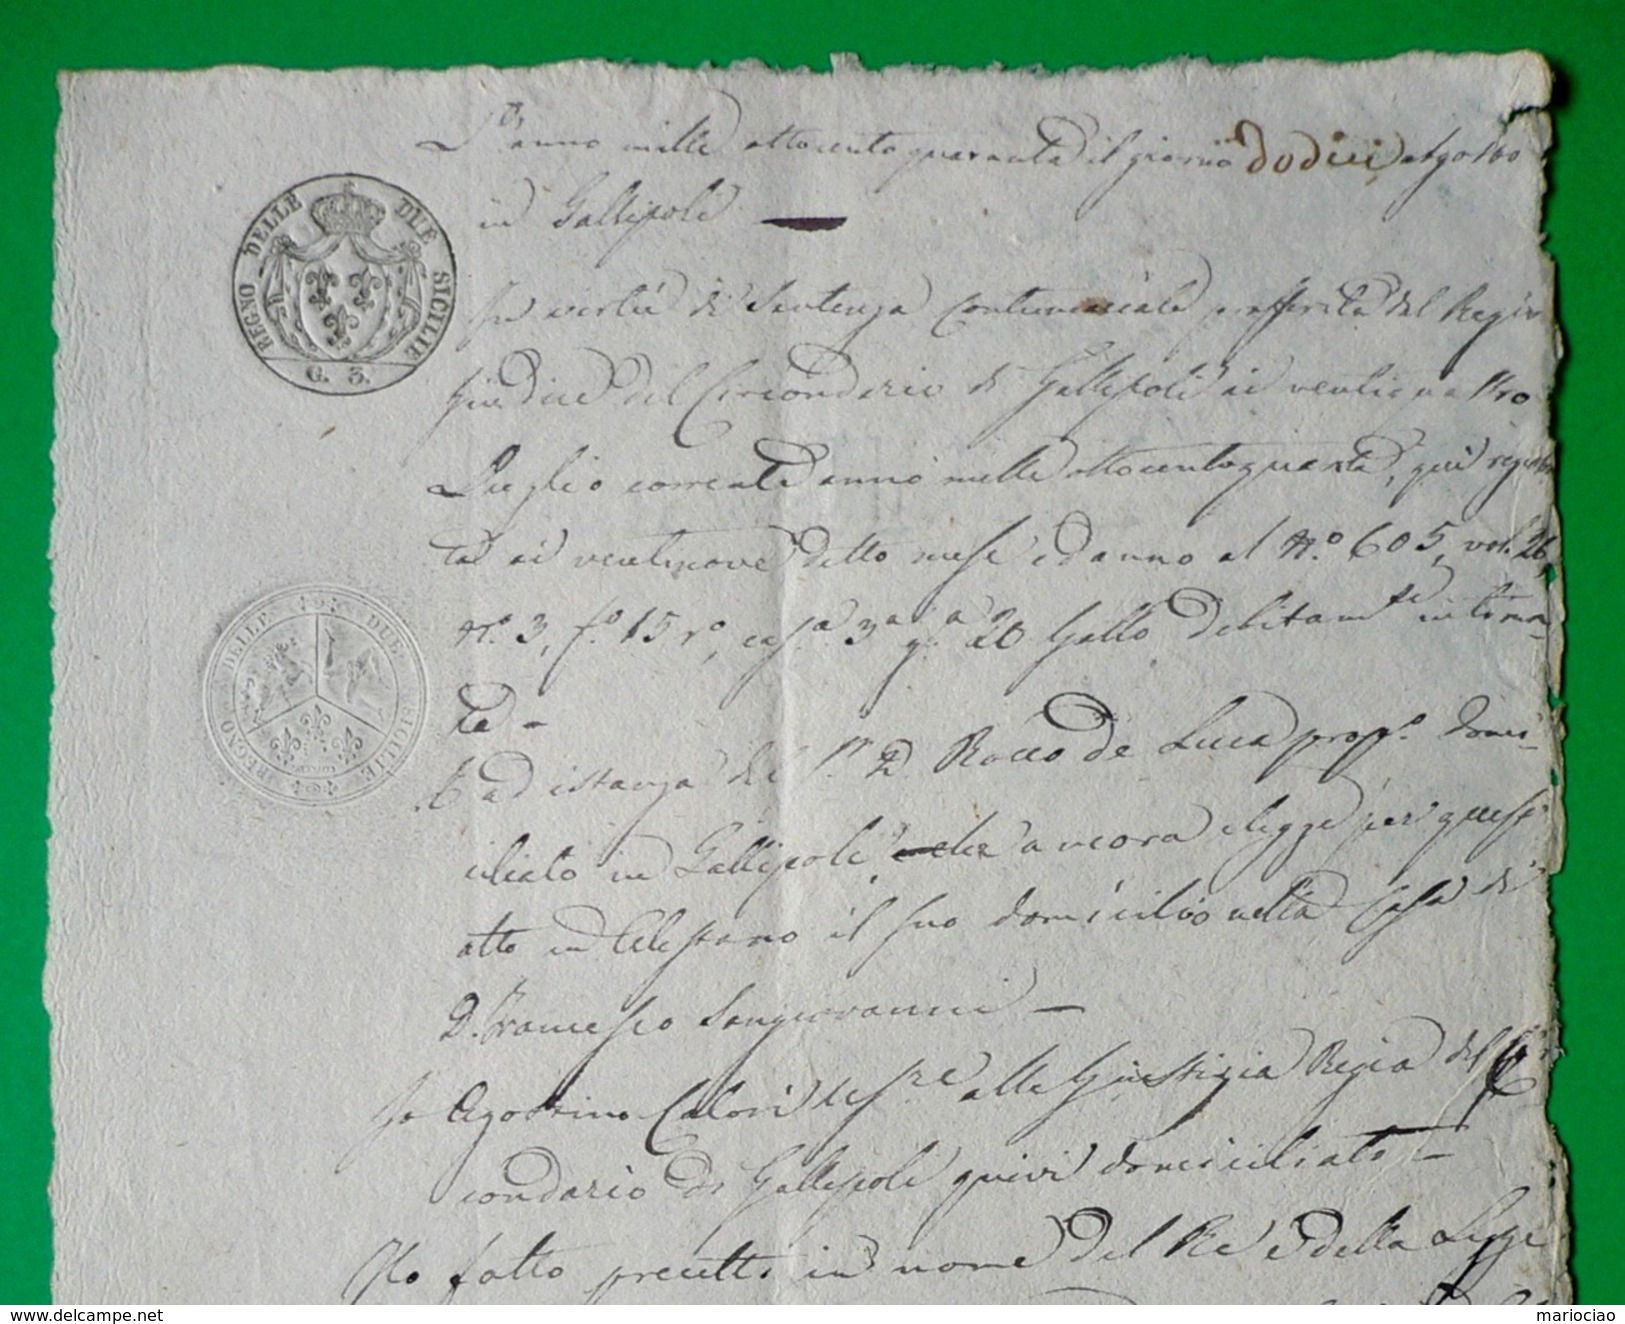 L'anno mille ottocento quaranta il giorno dodici Agosto
in Gallipoli
REGNO DELLE DUE SICILIE
G. 3.
In virtù di Sentenza Contumaciale profferita dal Regio
Giudice del Circondario di Gallipoli ai ventiquattro
Luglio corrente anno mille ottocentoquaranta, qui registra
ta ai ventinove detto mese ed anno al N.º 605, vol. 26,
N.º 3, f.º 15 r.º, cas.ª 3ª g.ª 20 Gallo debitam.te intima-
ta -
REGNO DELLE DUE SICILIE
E ad istanza del S.r D. Rocco de Luca prop.º domi-
ciliato in Gallipoli, che ancora elegge per quest
atto in Alessano il suo domicilio nella Casa di
D. Francesco Sangiovanni -
Io Agostino Calori us.re alla Giustizia Regia del Cir
condario di Gallipoli quivi domiciliato -
Ho fatto precetto in nome del Re e della Legge
delcampe.net
mariociao